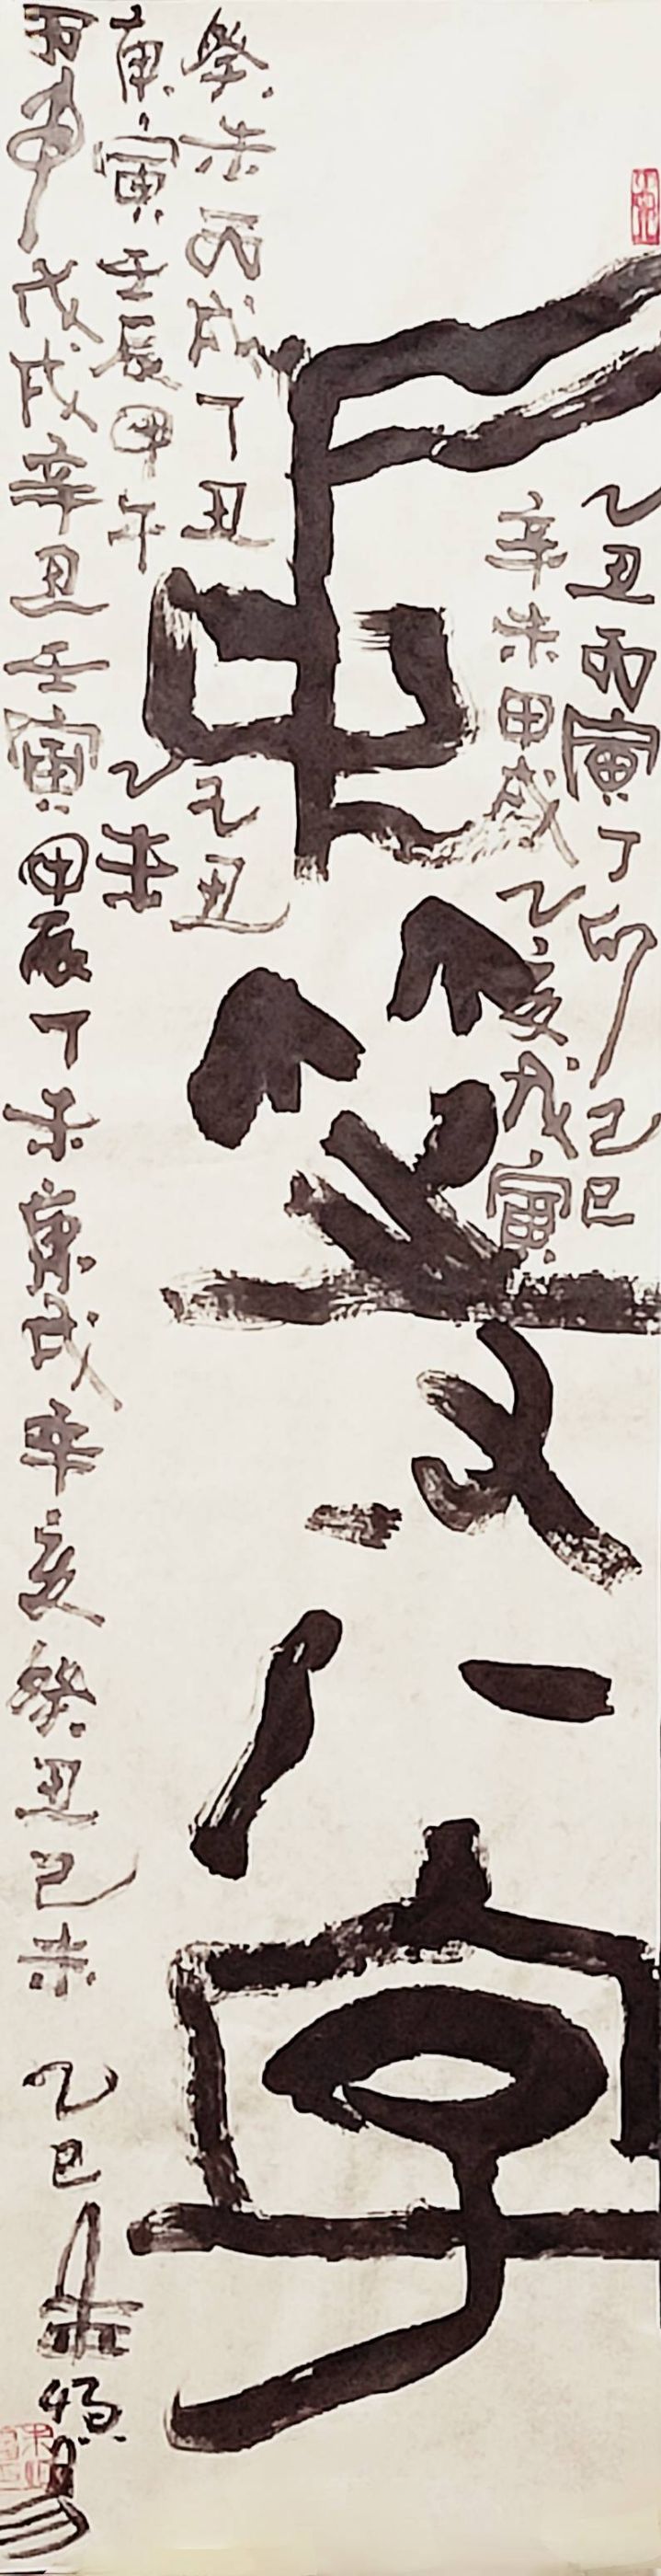 中
八字
乙丑丙寅丁卯己巳
辛未甲戌乙亥戊寅
癸未丙戌丁丑己丑
庚寅壬辰甲午乙未
丙申戊戌辛丑壬寅甲辰丁未庚戌辛亥癸丑己未
乙巳